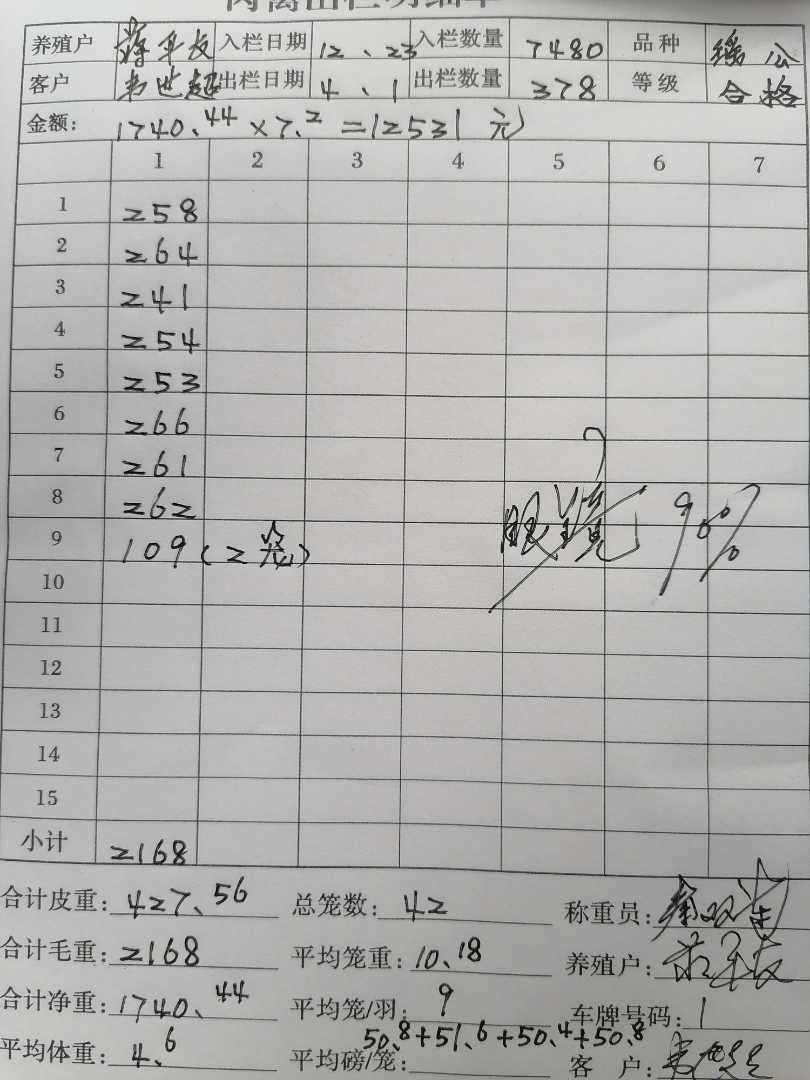 肉禽出栏明细单
养殖户 蒋平友 入栏日期 12、23 入栏数量 7480 品种 公
客户 韦世超 出栏日期 4、1 出栏数量 378 等级 合格
金额: 1740.44×7.2=12531元
1 2 3 4 5 6 7
1 258
2 264
3 241
4 254
5 253
6 266
7 261
8 262
9 109(2笼)
10
11
12
13
14
15
小计 2168
合计皮重: 427、56 总笼数: 42 称重员:
合计毛重: 2168 平均笼重: 10、18 养殖户: 蒋平友
合计净重: 1740、44 平均笼/羽: 9 车牌号码: 1
50.8+51.6+50.4+50.8
平均体重: 4.6 平均磅/笼: 客 户: 韦世超